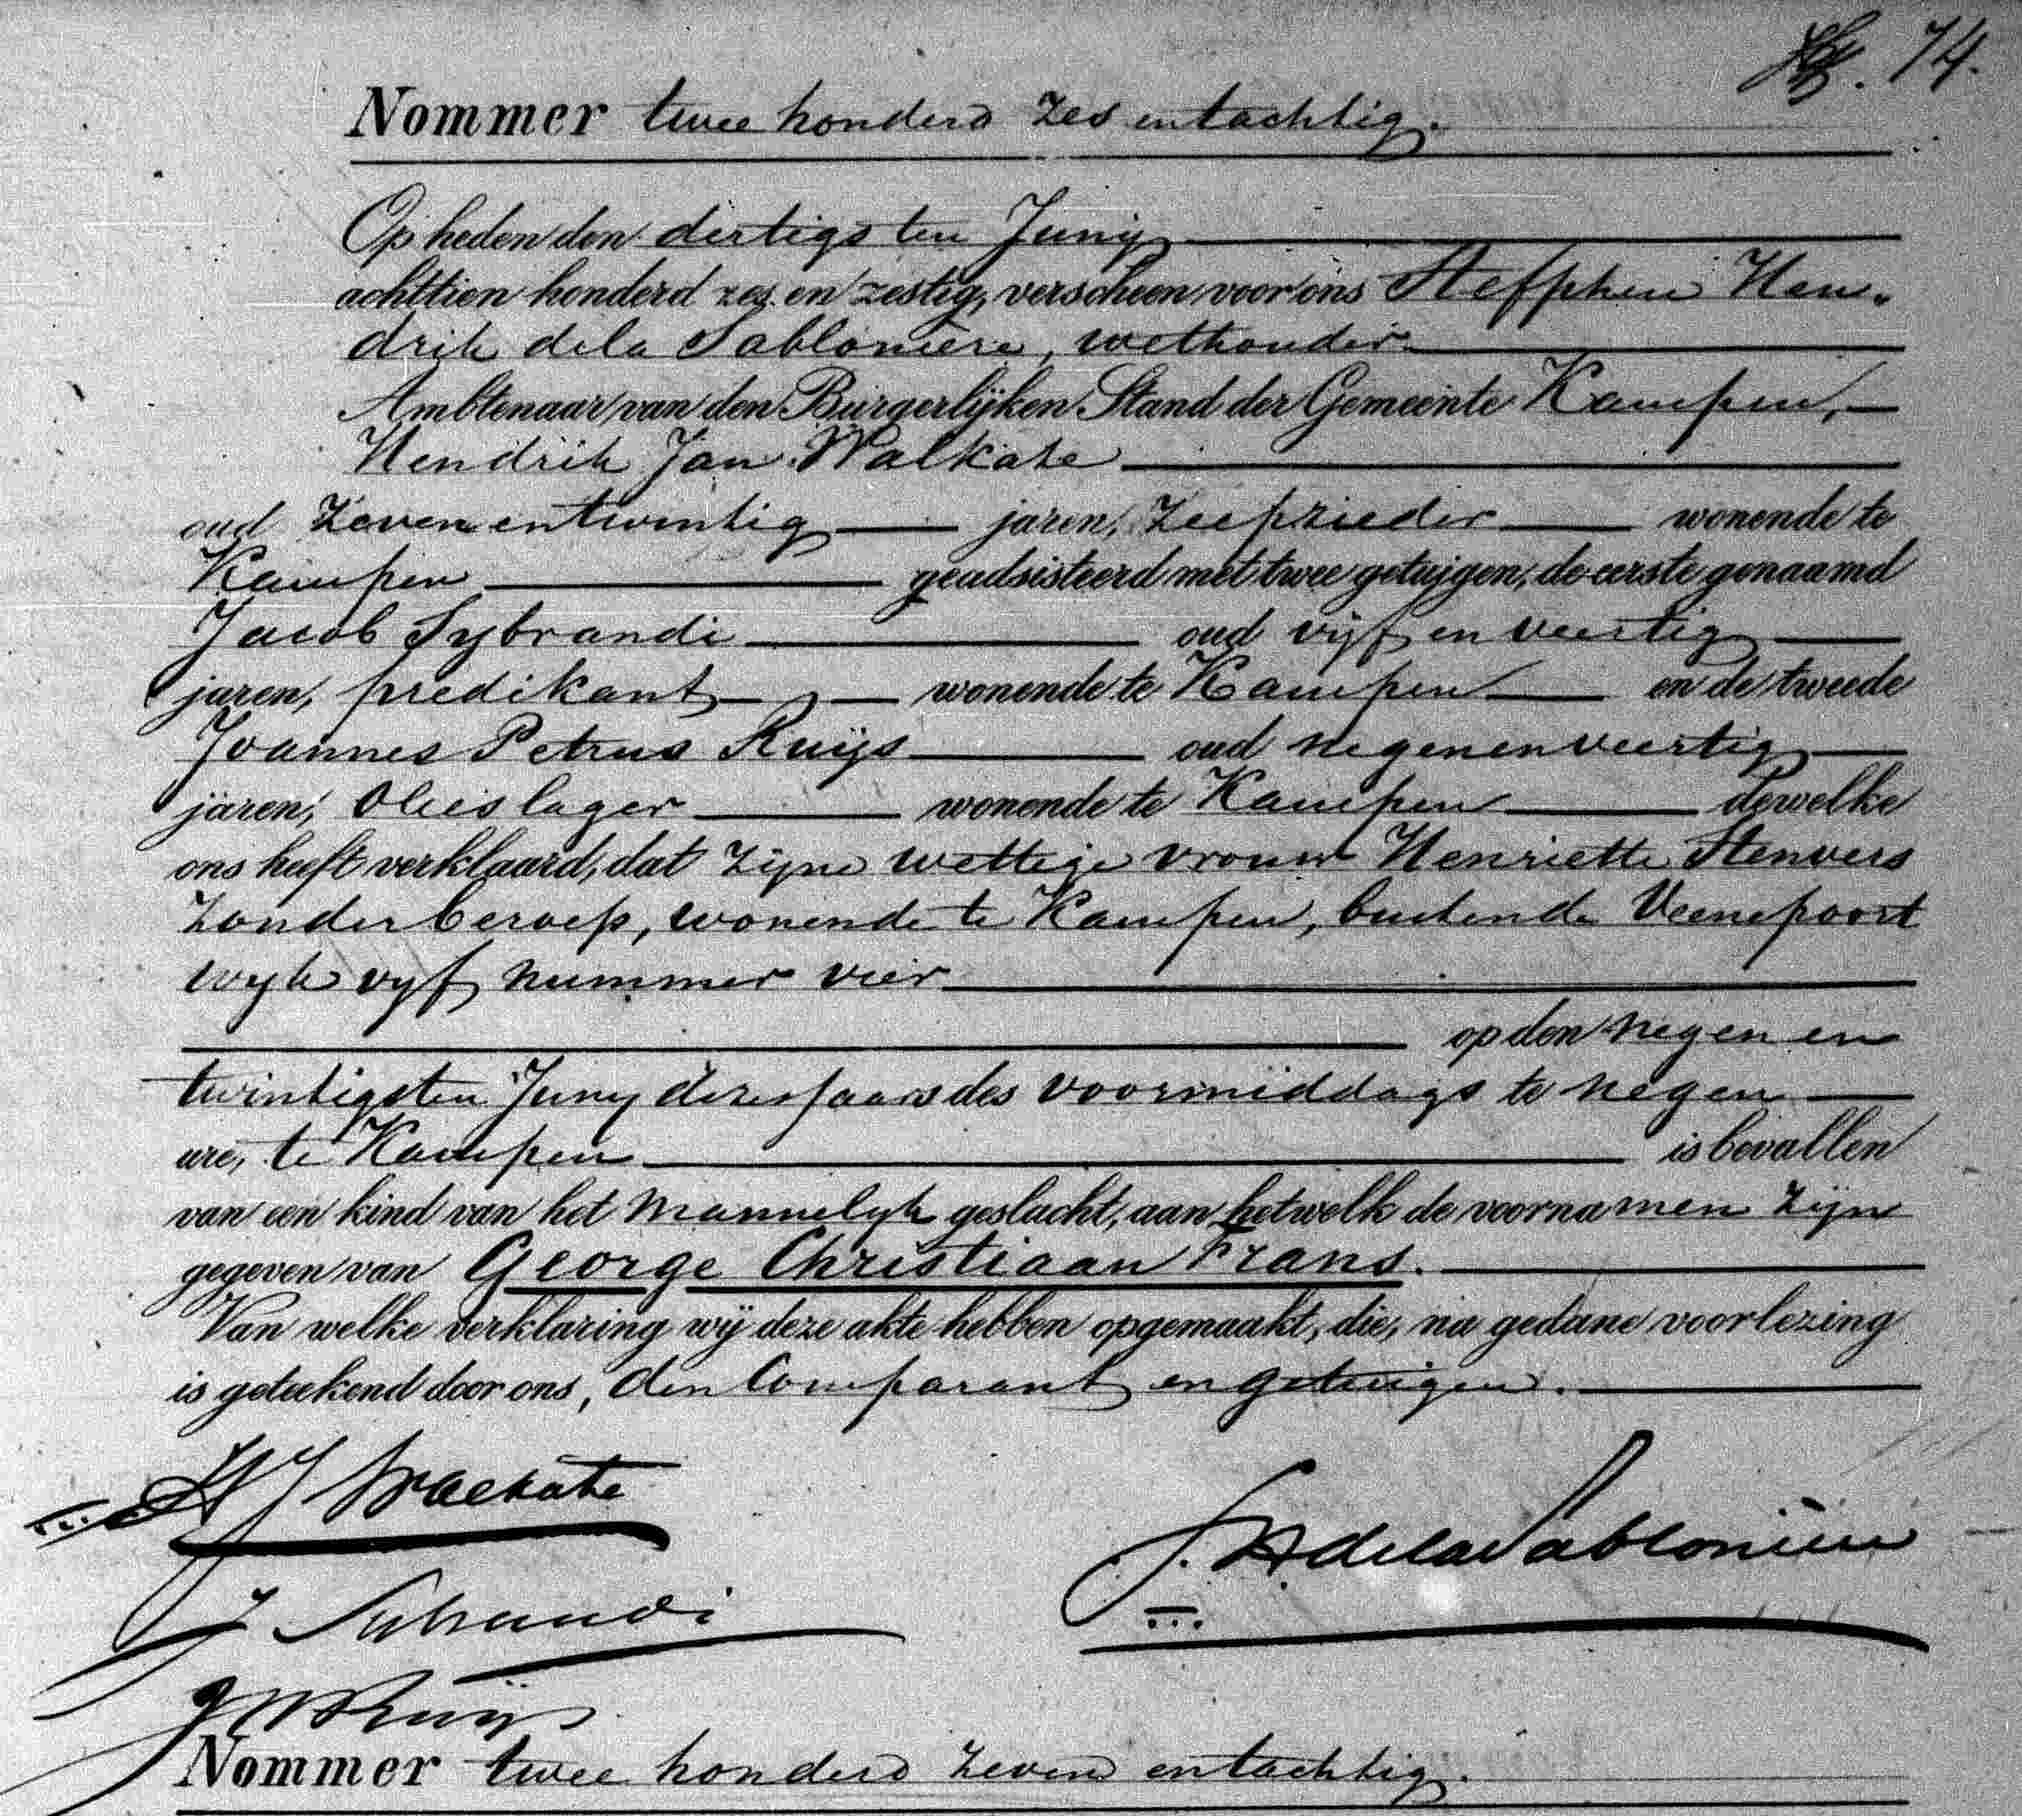 74.
Nommer twee honderd zes en tachtig.
Op heden den dertigsten Junij
achttien honderd zes en zestig, verscheen voor ons Steffphen Hen-
drik de la Sabloniere, wethouder
Ambtenaar van den Burgerlijken Stand der Gemeente Kampen,
Hendrik Jan Walkate
oud zeven en twintig jaren, Zeepzieder wonende te
Kampen geadsisteerd met twee getuigen, de eerste genaamd
Jacob Sybrandi oud vijf en veertig
jaren, predikant wonende te Kampen en de tweede
Joannes Petrus Ruijs oud negen en veertig
jaren, Olieslager wonende te Kampen dewelke
ons heeft verklaard, dat zijne wettige vrouw Henriette Stenvers
zonder beroep, wonende te Kampen, buiten de Veenepoort
wyk vyf nummer vier
op den negen en
twintigsten Juny dezes Jaars des voormiddags te negen
ure, te Kampen is bevallen
van een kind van het mannelyk geslacht, aan hetwelk de voornamen zijn
gegeven van George Christiaan Frans.
Van welke verklaring wij deze akte hebben opgemaakt, die, na gedane voorlezing
is geteekend door ons, den Comparant en getuigen.
HJ Walkate
S. H de la Sablonière
J Sybrandi
JP Ruijs
Nommer twee honderd zeven en tachtig.